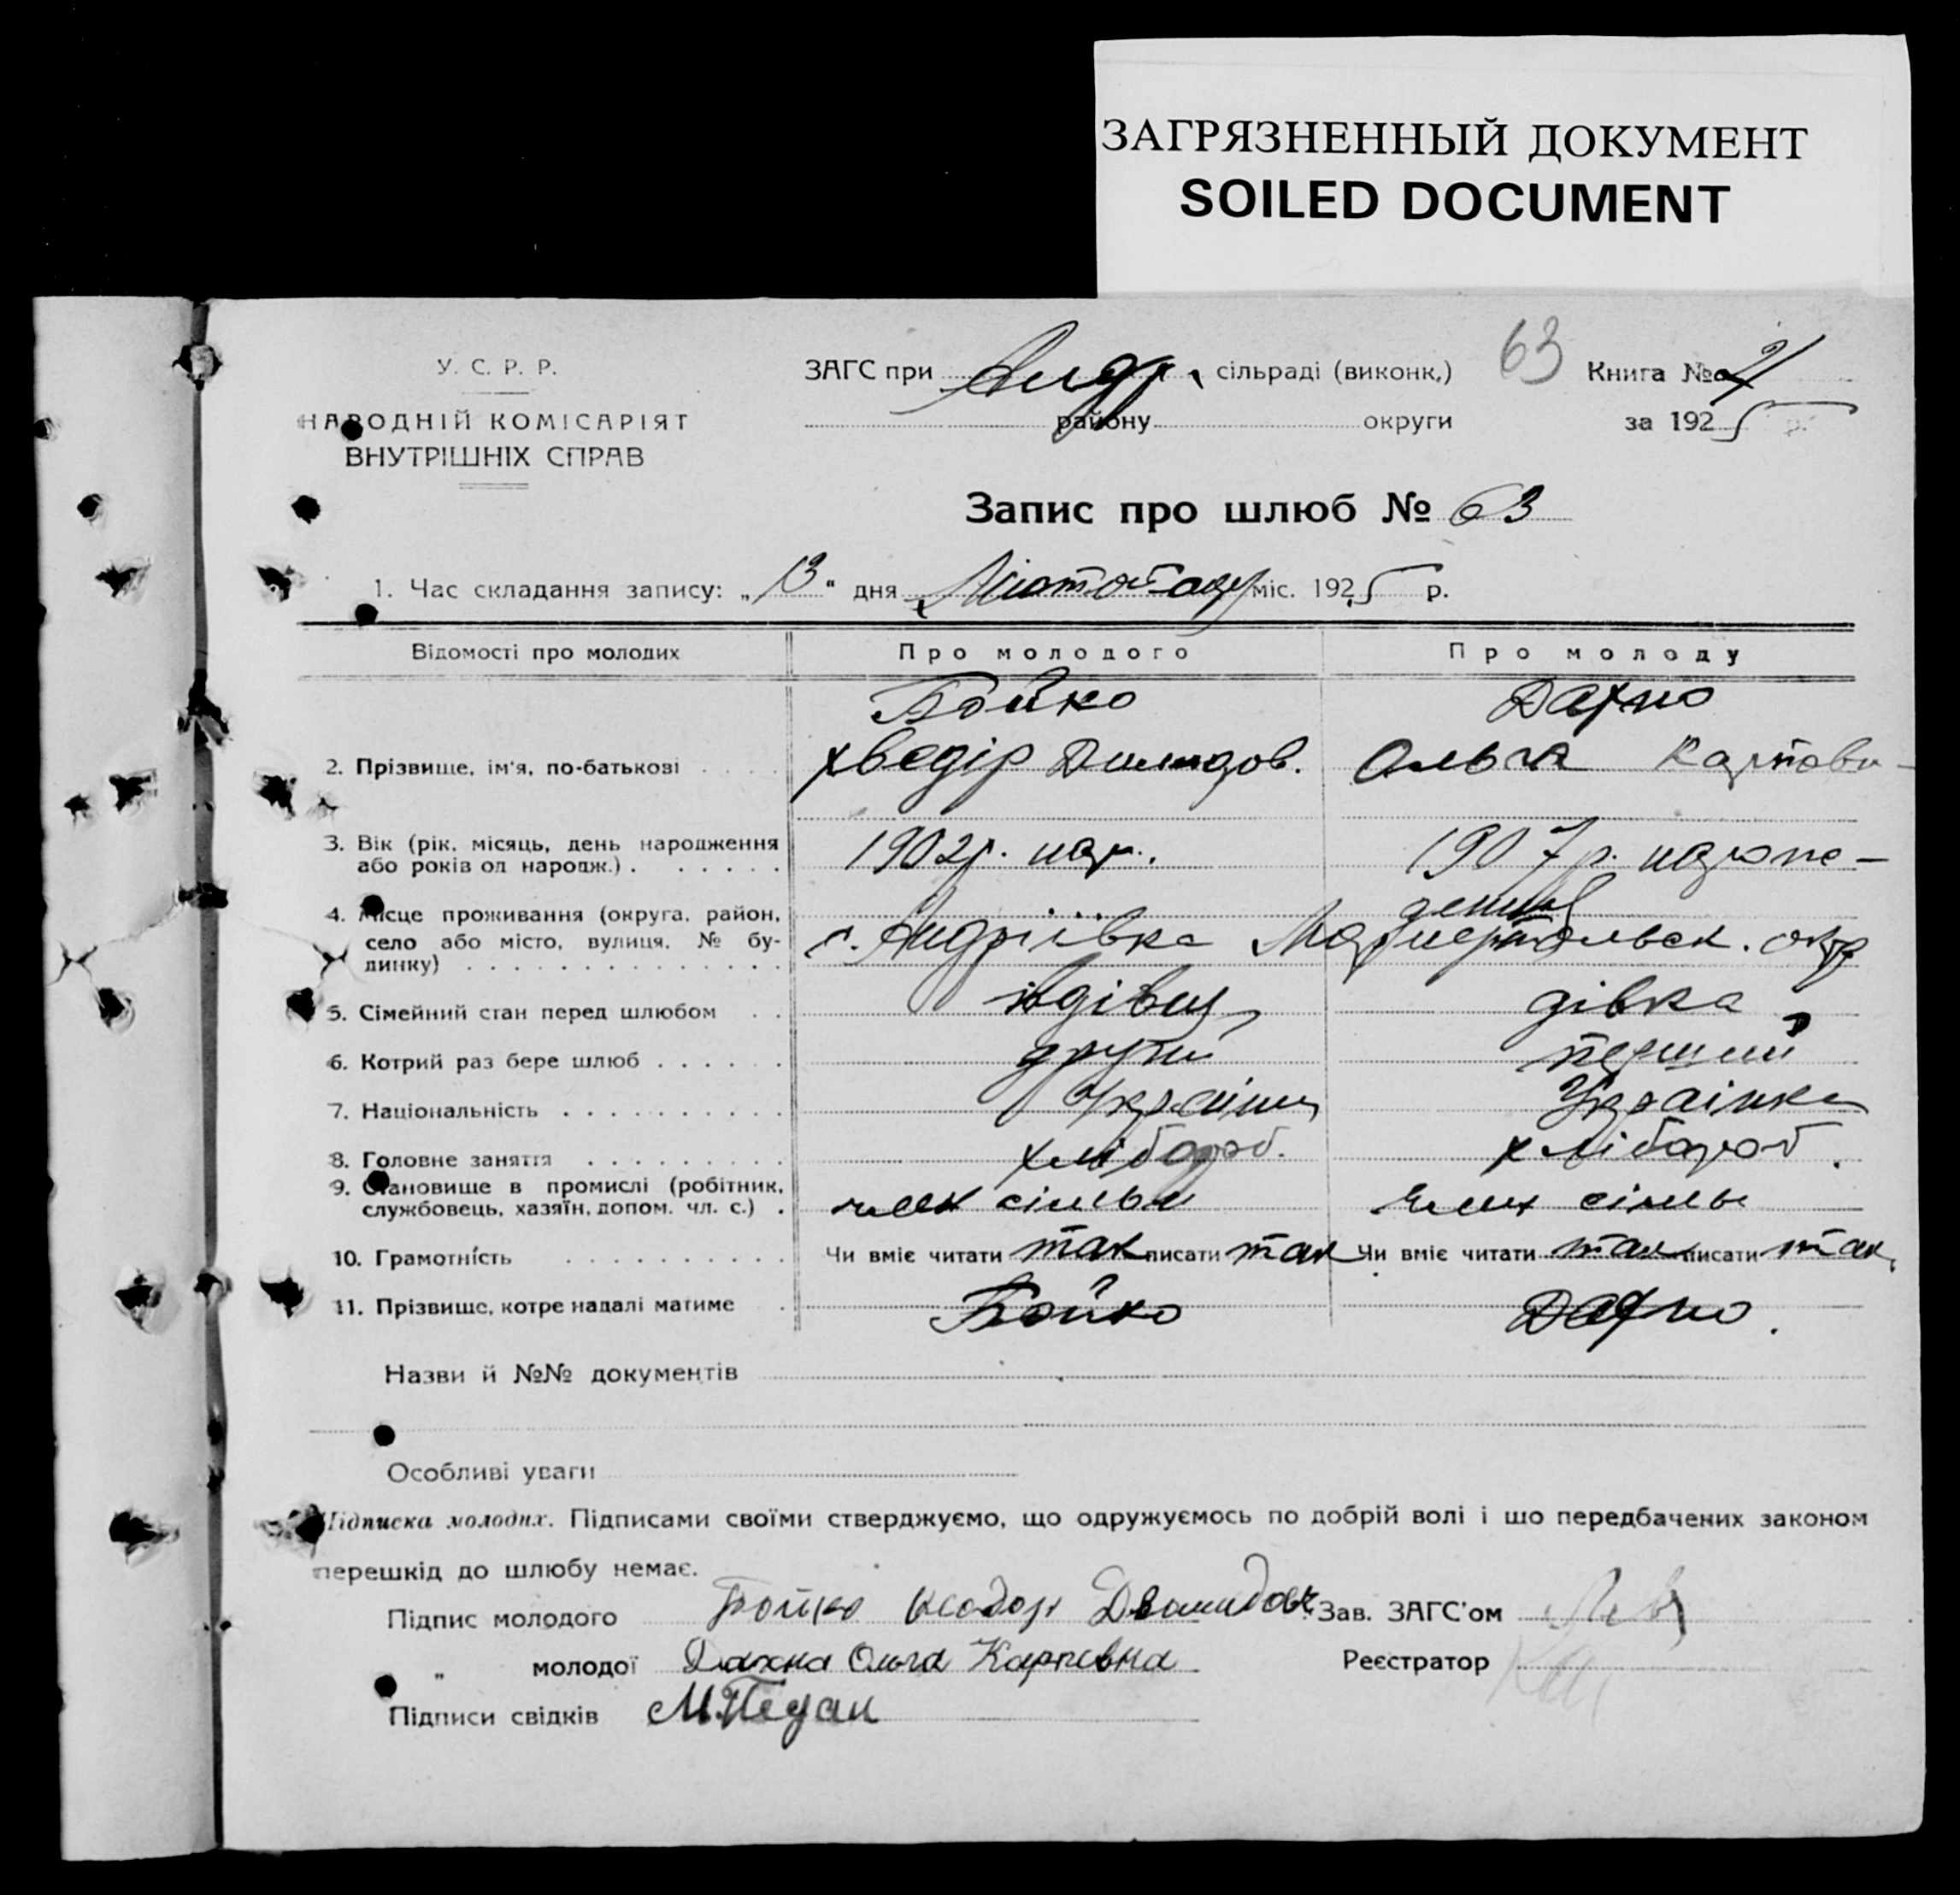 ЗАГРЯЗНЕННЫЙ ДОКУМЕНТ
SOILED DOCUMENT
У. С. Р. Р.
НАРОДНІЙ КОМІСАРІЯТ
ВНУТРІШНІХ СПРАВ
ЗАГС при Андр. сільраді (виконк.)
району округи
63
Книга №
за 1925 р.
Запис про шлюб № 63
1. Час складання запису: „13“ дня Лютого міс. 1925 р.
Відомості про молодих Про молодого Про молоду
Бойко Дахно
2. Прізвище, ім'я, по-батькові . . . . Хведір Ольга Карпови-
3. Вік (рік, місяць, день народження
або років од народж.) . . . . . . 1902р. нар. 1907р. народже-
4. Місце проживання (округа, район,
село або місто, вулиця, № бу-
динку) . . . . . . . . . . . . . . с. Андріївка Мариупольск. окр
5. Сімейний стан перед шлюбом . . вдівец дівка
6. Котрий раз бере шлюб . . . . . . другий перший
7. Національність . . . . . . . . . . Українец Українка
8. Головне заняття . . . . . . . . . хлібороб. хлібороб.
9. Становище в промислі (робітник,
службовець, хазяїн, допом. чл. с.) . член сімьи член сімьи
10. Грамотність . . . . . . . . . . Чи вміє читати так писати так Чи вміє читати так писати так
11. Прізвище, котре надалі матиме . Бойко Дахно.
Назви й №№ документів
Особливі уваги
Підписка молодих. Підписами своїми стверджуємо, що одружуємось по добрій волі і що передбачених законом
перешкід до шлюбу немає.
Підпис молодого Бойко Зав. ЗАГС'ом
„ молодої Дахна Ольга Карповна Реєстратор
Підписи свідків М. Педан